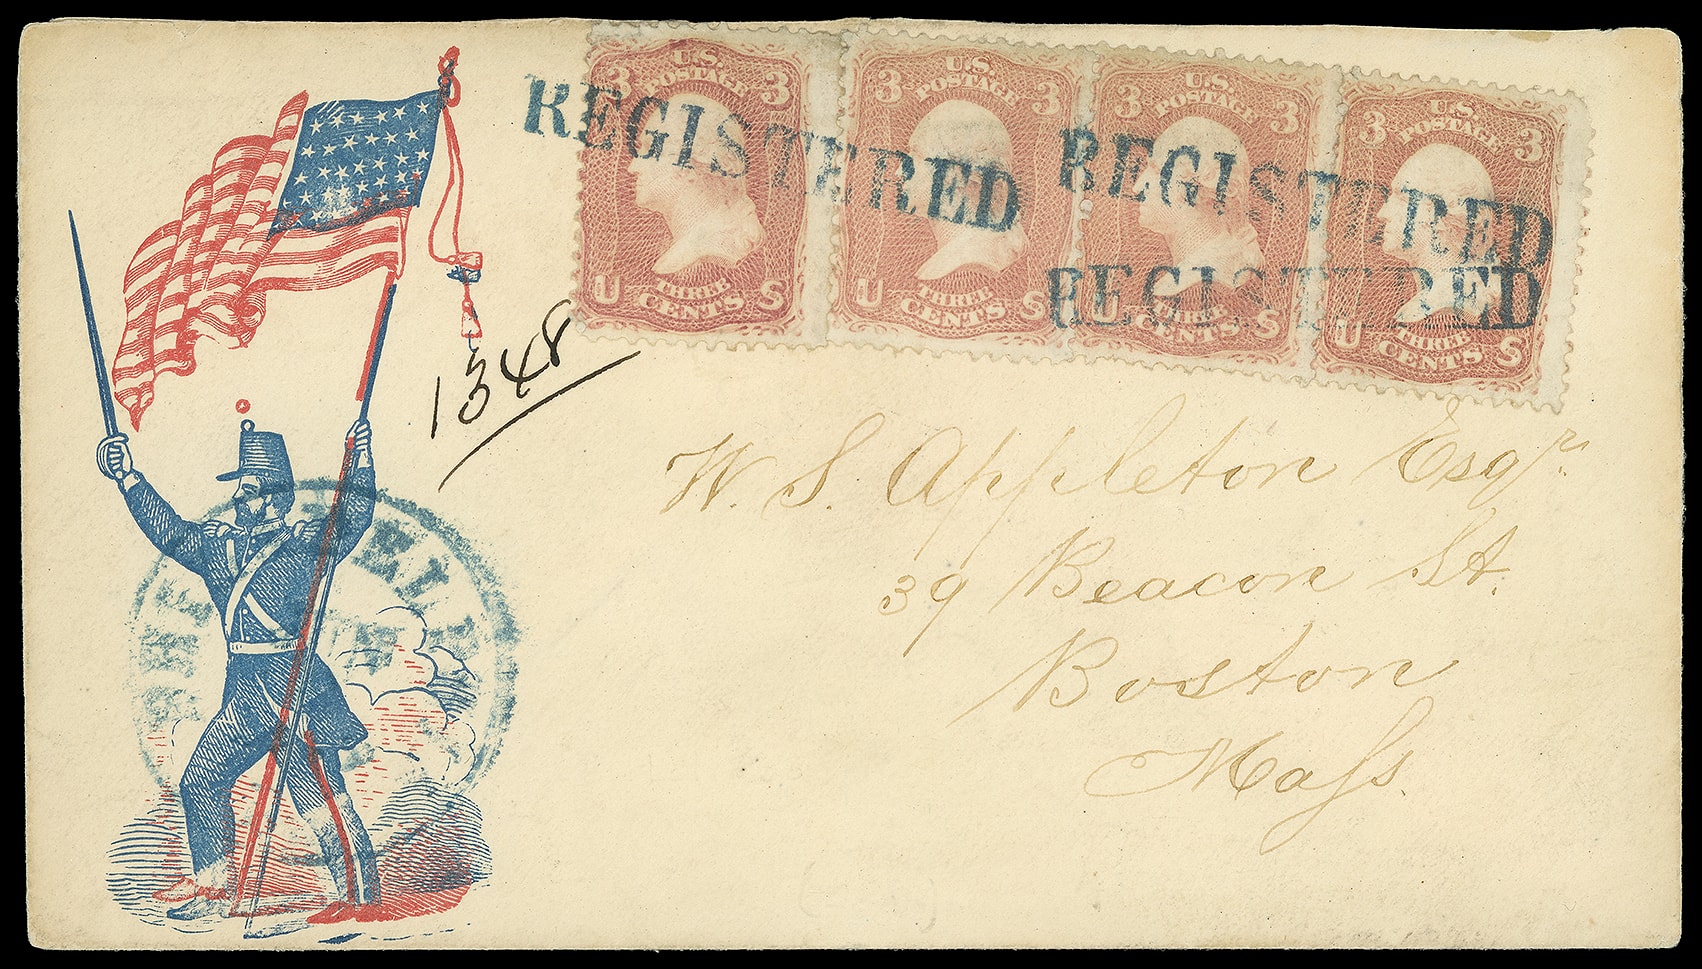 3 U.S. POSTAGE 3
U THREE CENTS S
3 U.S. POSTAGE 3
U THREE CENTS S
3 U.S. POSTAGE 3
U THREE CENTS S
3 U.S. POSTAGE 3
U THREE CENTS S
REGISTERED
REGISTERED
REGISTERED
1348
W. S. Appleton Esqr.
39 Beacon St.
Boston
Mass.